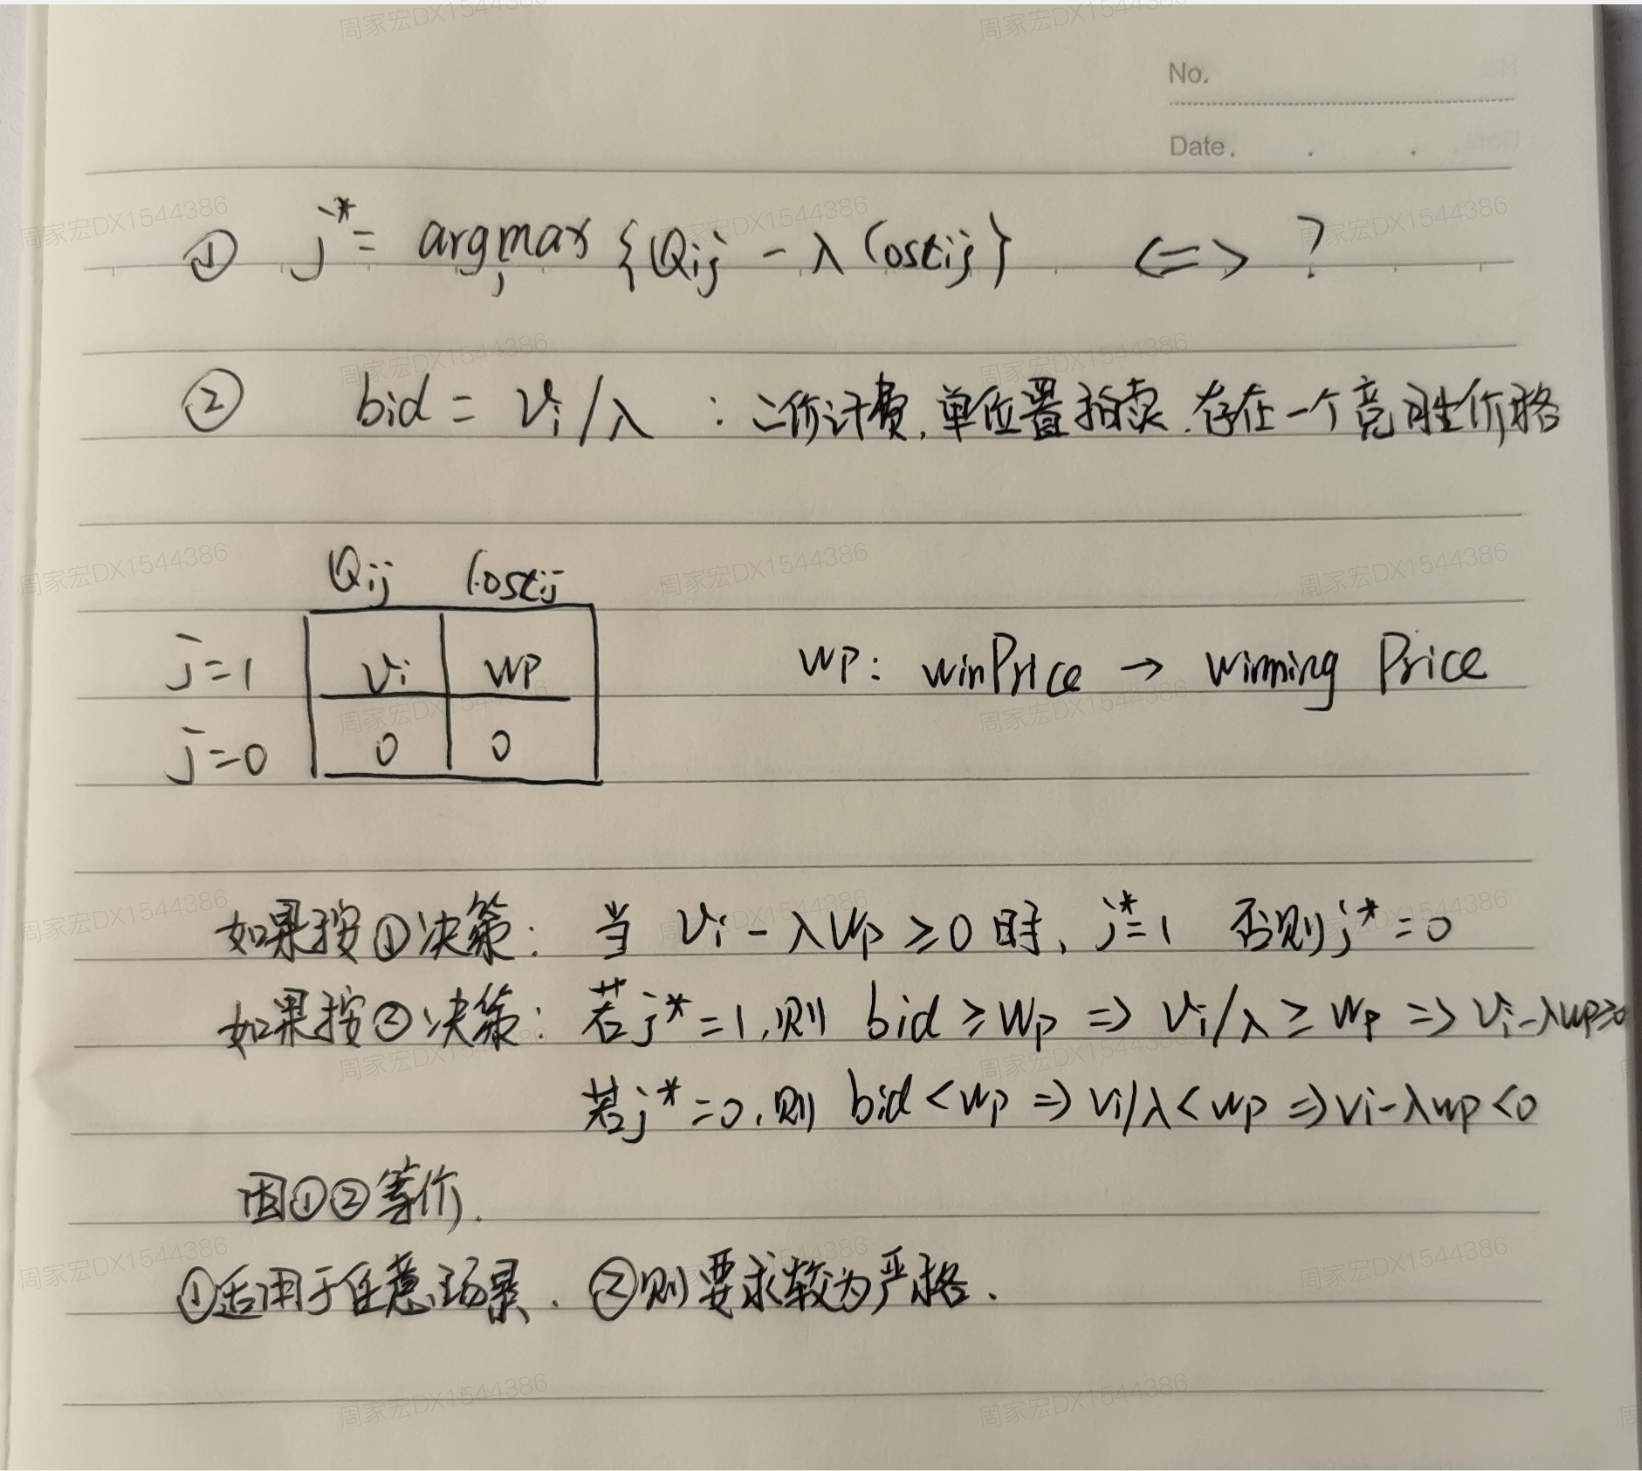 No.
Date.
① j* = argmax_j {Qij - λ Costij} <=> ?
② bid = vi/λ : 二价计费,单位置拍卖,存在一个竞胜价格
Qij Costij
j=1 vi wp wp: winPrice → winning Price
j=0 0 0
如果按①决策: 当 vi - λwp ≥ 0 时, j*=1 否则j*=0
如果按②决策: 若j*=1,则 bid ≥ wp => vi/λ ≥ wp => vi-λwp≥0
若j*=0,则 bid < wp => vi/λ < wp => vi-λwp <0
因①②等价.
①适用于任意场景. ②则要求较为严格.
周家宏DX1544386